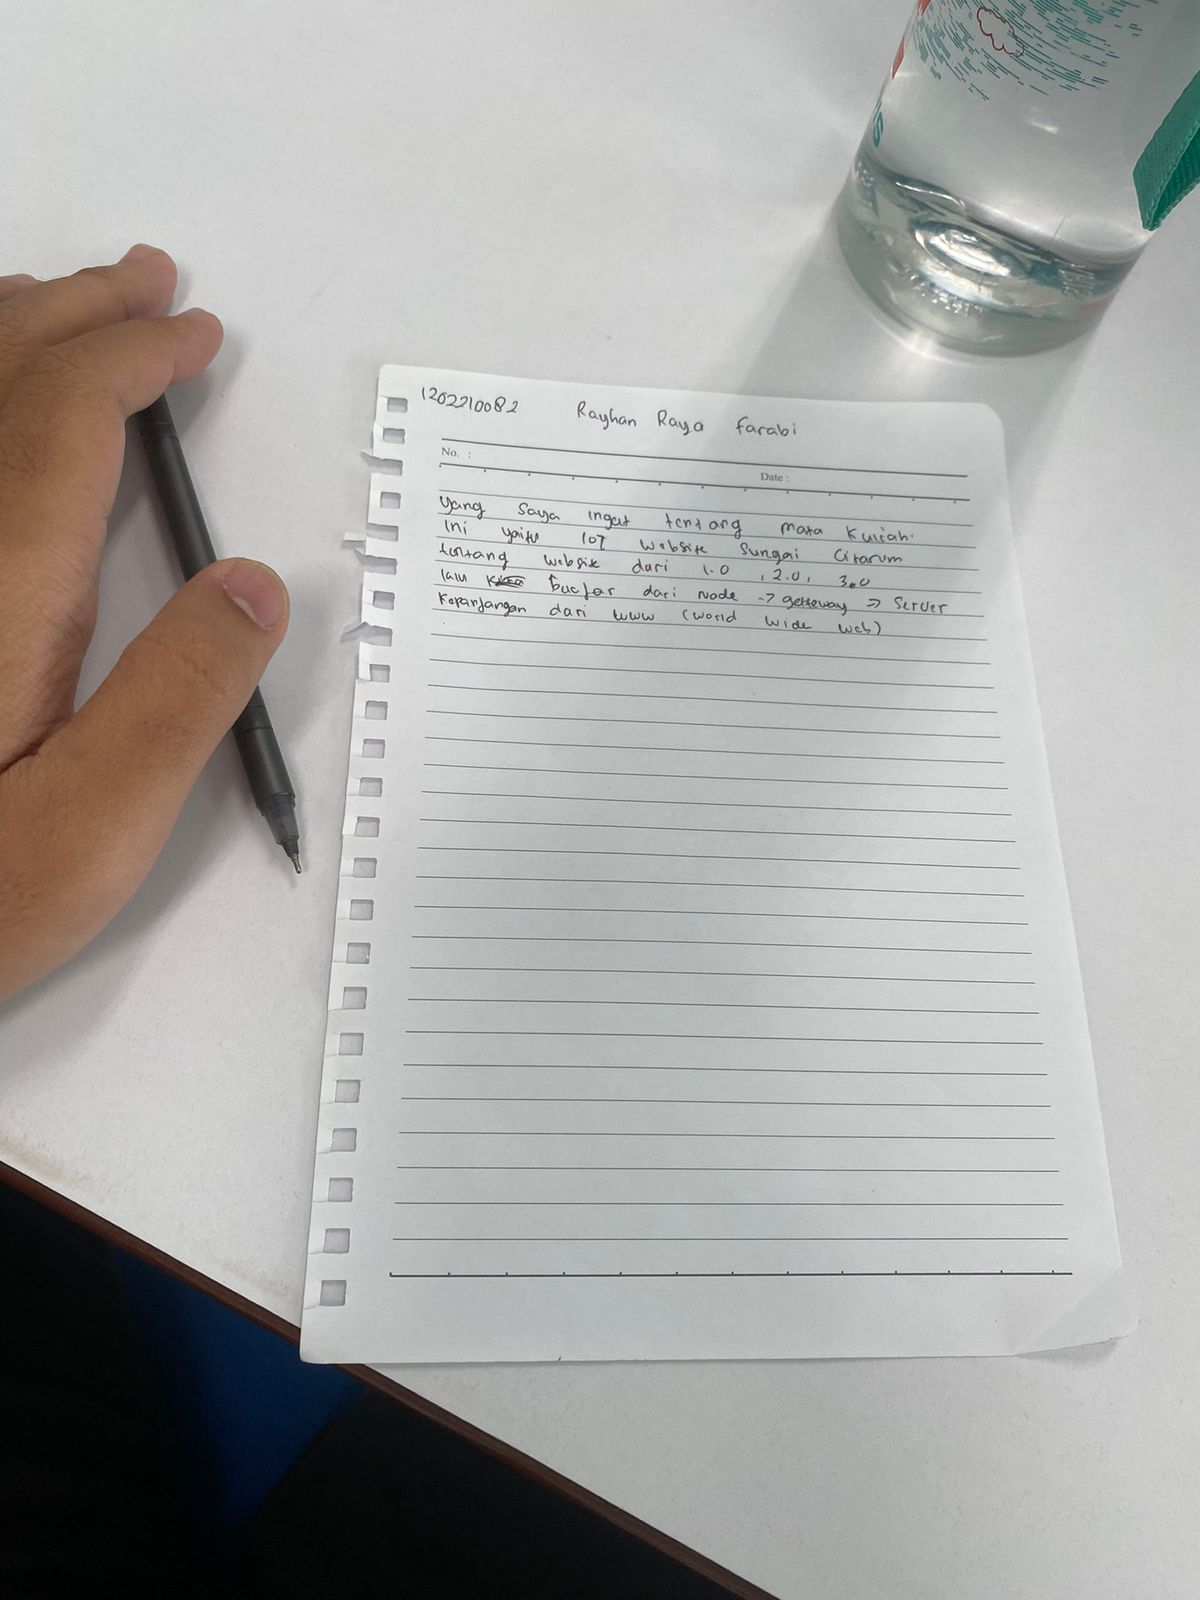 1202210082 Rayhan Raya Farabi
No. :
Date :
yang saya ingat tentang mata kuliah
ini yaitu IoT website sungai Citarum
tentang website dari 1.0 , 2.0, 3.0
lalu dari Node -> gateway => Server
Kepanjangan dari www (world wide web)